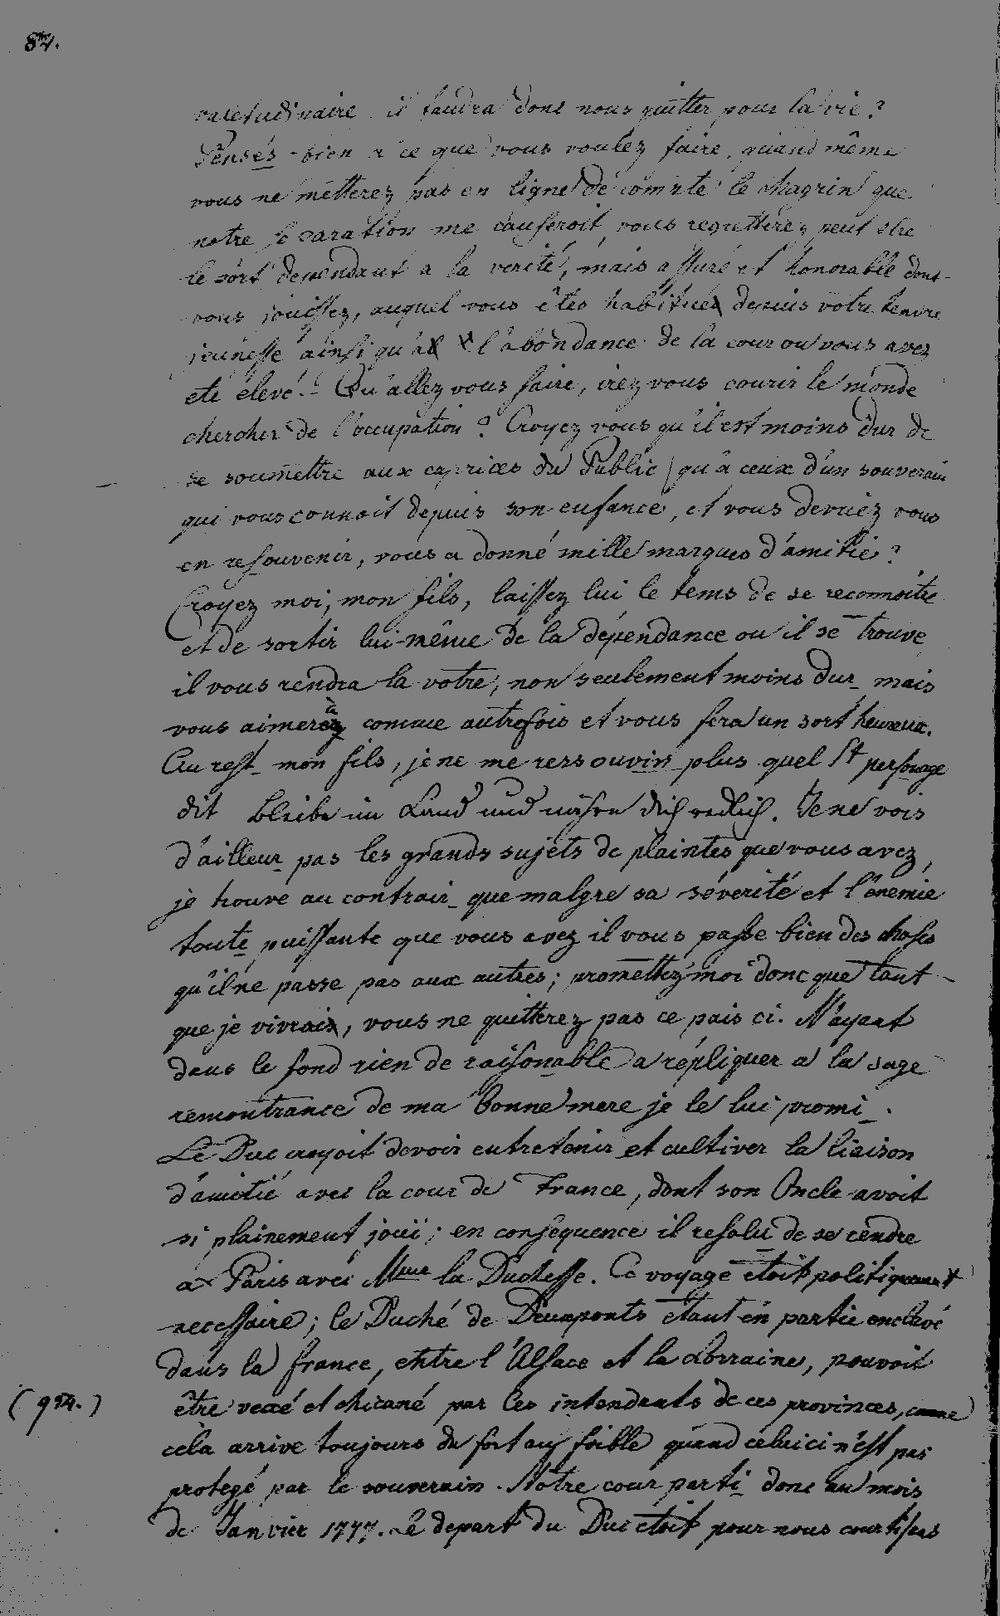 84.
valetudinaire il faudra donc nous quitter pour la vie?
Pensés-bien a ce que vous voulez faire, quand même
vous ne metterez pas en ligne de compte le chagrin que
notre separation me causeroit, vous regretterez peut etre
le sort dependant a la verité, mais assuré et honorable dont
vous jouissez, auquel vous êtes habitué depuis votre tendre
jeunesse ainsi qu'a l'abondance de la cour ou vous avez
eté élevé. Qu'allez vous faire, irez vous courir le monde
chercher de l'occupation? Croyez vous qu'il est moins dur de
se soumettre aux caprices du Public qu'a ceux d'un souverain
qui vous connoit depuis son enfance, et vous devriez vous
en resouvenir, vous a donné mille marques d'amitié?
Croyez moi, mon fils, laissez lui le tems de se reconnoitre
et de sortir lui-même de la dépendance ou il se trouve
il vous rendra la votre, non seulement moins dur mais
vous aimera comme autrefois et vous fera un sort heureux.
Au rest mon fils, je ne me ressouvin plus quel St personage
dit bleibe im Land und nähre dich redlich. Je ne vois
d'ailleur pas les grands sujets de plaintes que vous avez,
je trouve au contrair que malgre sa séverité et l'énemie
toute puissante que vous avez il vous passe bien des choses
qu'il ne passe pas aux autres; promettez moi donc que tant
que je vivrai, vous ne quitterez pas ce pais ci. N'ayant
dans le fond rien de raisonable a répliquer a la sage
remontrance de ma bonne mere je le lui promi.
Le Duc croyoit devoir entretenir et cultiver la liaison
d'amitié avec la cour de France, dont son Oncle avoit
si plainement jouï; en conséquence il resolu de se rendre
a Paris avec Mme la Duchesse. Ce voyage etoit politiquement
necessaire; le Duché de Deuxponts etant en partie enclavé
dans la france, entre l'Alsace et la Lorraine, pouvoit
(954.) être vexé et chicané par les intendants de ces provinces, comme
cela arrive toujours du fort au foible quand celui ci n'est pas
protegé par le souverain. Nôtre cour parti donc au mois
de Janvier 1777. Le depart du Duc etoit pour nous courtisans